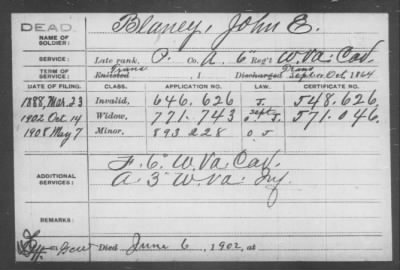 DEAD.
NAME OF SOLDIER: Blaney, John E.
SERVICE: Late rank, P. Co. A, 6" Reg't W. Va. Cav.
TERM OF SERVICE: Trans Enlisted , 1 Discharged Trans Oct, 1864
DATE OF FILING. CLASS. APPLICATION NO. LAW. CERTIFICATE NO.
1888, Mar. 23 Invalid, 646.626 J. 548.626
1902 Oct 14 Widow, 771.743 571.046
1908 May 7 Minor, 893228 O J
ADDITIONAL SERVICES: F. 6" W. Va. Cav.
A. 3" W. Va. Inf.
REMARKS:
Died June 6, 1902, at